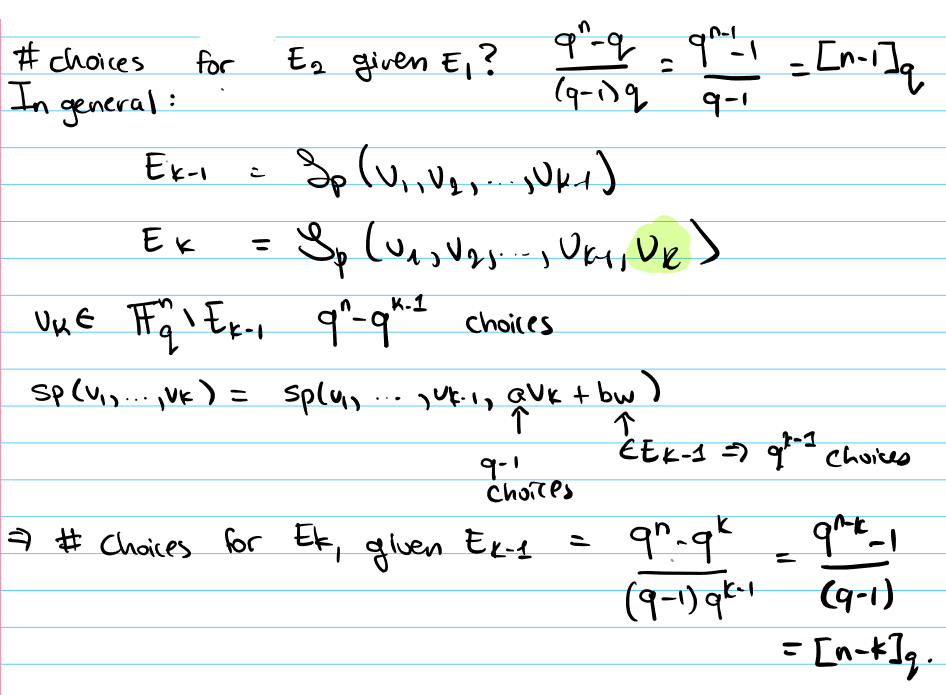 # choices for E₂ given E₁? (qⁿ-q)/((q-1)q) = (qⁿ⁻¹-1)/(q-1) = [n-1]_q
In general:
E_{k-1} = Sp(v₁, v₂, ..., v_{k-1})
E_k = Sp(v₁, v₂, ..., v_{k-1}, v_k)
v_k ∈ 𝔽_qⁿ \ E_{k-1} qⁿ-q^{k-1} choices
sp(v₁, ..., v_k) = sp(v₁, ..., v_{k-1}, av_k + bw)
↑ ↑
q-1 choices
∈E_{k-1} ⇒ q^{k-1} choices
⇒ # choices for E_k, given E_{k-1} = (qⁿ-q^k)/((q-1)q^{k-1}) = (q^{n-k}-1)/(q-1)
= [n-k]_q.